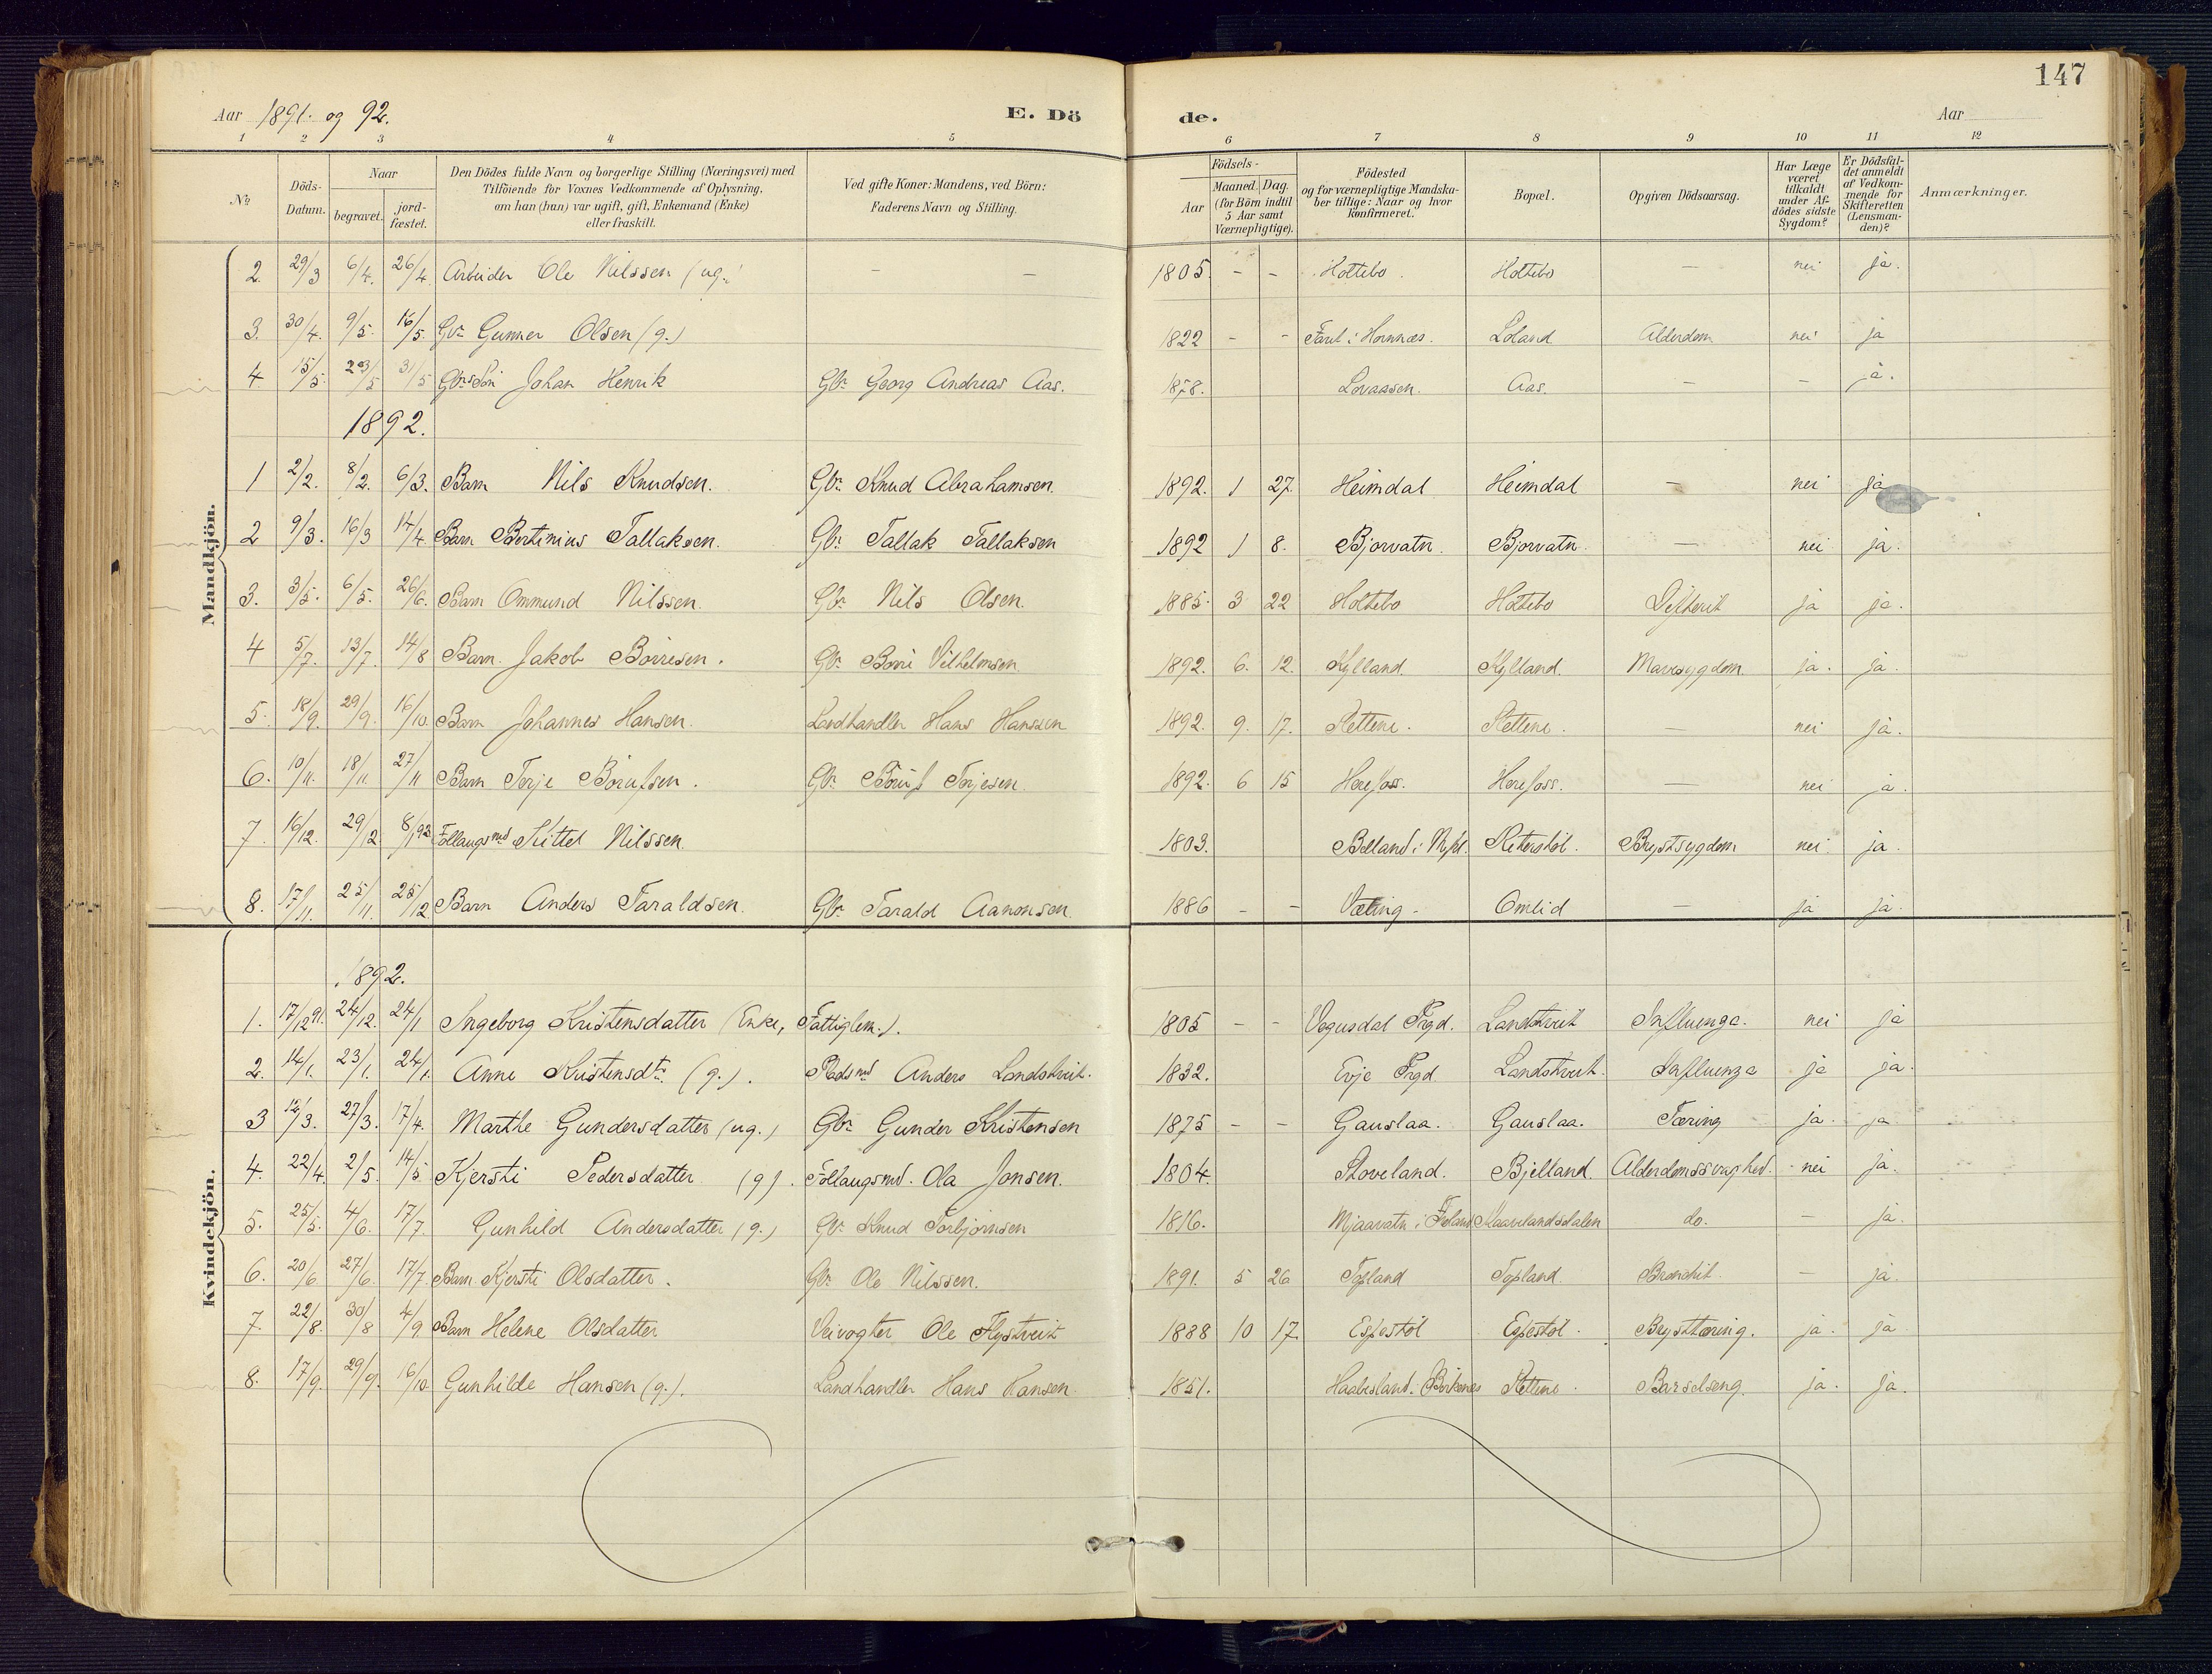 147
Aar 1891. og 92. E. Dö de. Aar
1 2 3 4 5 6 7 8 9 10 11 12
№ Döds-Datum. Naar begravet. jordfæstet. Den Dödes fulde Navn og borgerlige Stilling (Næringsvei) med Tilföiende for Voxnes Vedkommende af Oplysning, om han (hun) var ugift, gift, Enkemand (Enke) eller fraskilt. Ved gifte Koner: Mandens, ved Börn: Faderens Navn og Stilling. Födsels- Aar Maaned. Dag. (for Börn indtil 5 Aar samt Værnepligtige). Födested og for værnepligtige Mandskaber tillige: Naar og hvor konfirmeret. Bopæl. Opgiven Dödsaarsag. Har Læge været tilkaldt under Afdödes sidste Sygdom? Er Dödsfaldet anmeldt af Vedkommende for Skifteretten (Lensmanden)? Anmærkninger.
Mandkjön.
2. 29/3 6/4. 26/4. Arbeider Ole Nilssen (ug.) – – 1805. – – Holtebo. Holtebo – nei ja.
3. 30/4. 9/5. 16/5. Gbr. Gunner Olsen (g.) 1822 – – i Hornnæs. Loland Alderdom nei ja
4 15/5. 23/5 31/5 Gbrsön Johan Henrik Gbr. Georg Andreas Aas. 1878. Lovaasen. Aas. – – ja.
1892.
1 2/2. 8/2. 6/3. Barn Nils Knudsen. Gbr. Knud Abrahamsen. 1892. 1 27. Heimdal Heimdal – nei ja
2 9/3. 16/3 14/4. Barn Bertinius Tallaksen. Gbr. Tallak Tallaksen 1892 1 8. Bjorvatn. Bjorvatn. – nei ja.
3. 3/5. 6/5. 26/6. Barn Ommund Nilssen. Gbr. Nils Olsen. 1885. 3 22 Holtebo Holtebo Difterit ja ja.
4 5/7. 13/7. 14/8 Barn. Jakob Börresen. Gbr. Börri Vilhelmsen 1892. 6. 12. Kylland. Kylland. Mavesygdom ja. ja.
5. 18/9. 29/9. 16/10. Barn Johannes Hansen. Landhandler Hans Hanssen 1892. 9. 17. Slettene. Slettene. – nei ja.
6. 10/11. 18/11 27/11 Barn Terje Börufsen. Gbr. Böruf Terjesen. 1892. 6 15 Herefoss. Herefoss. – nei ja.
7. 16/12. 29/12. 8/1 93. Föllaugsmd Kittel Nilssen 1803. Belland i Brystsygdom nei ja.
8. 17/11. 25/11. 25/12. Barn Anders Taraldsen. Gbr. Tarald Aanonsen. 1886 – – Væting. Omlid – ja ja.
Kvindekjön.
1892.
1. 17/12 91. 24/12. 24/1 Ingeborg Kristensdatter (Enke, Fattiglem.). 1805 – – Vegusdal Prgd. Landstveit Influenza. nei ja
2. 14/1. 23/1. 24/1. Anne Kristensdtr. (g.). Pladsmd Anders Landstveit. 1832. Evje Prgd. Landstveit. Influenza ja ja.
3 12/3. 27/3. 17/4. Marthe Gundersdatter (ug.) Gbr. Gunder Kristensen 1875 – – Gauslaa. Gauslaa. Tæring ja. ja
4. 22/4. 2/5. 14/5. Kjersti Pedersdatter (g). Föllaugsmd. Ola Jonsen. 1804. Stoveland. Bjelland. Alderdomssvaghed. nei ja.
5. 25/5. 4/6. 17/7. Gunhild Andersdatter (g.) Gbr. Knud Torbjörnsen 1816. Mjaavatn i Froland do. – ja.
6. 20/6 27/6. 17/7. Barn Kjersti Olsdatter. Gbr. Ole Nilssen. 1891. 5 26 Topland Topland. Bronchit. – ja.
7. 22/8. 30/8 4/9. Barn Helene Olsdatter Veivogter Ole Flystveit 1888 10 17. Espestöl Espestöl. Brysttæring. ja. ja
8. 17/9. 29/9. 16/10. Gunhilde Hansen (g.). Landhandler Hans Hansen. 1851. Haabesland. Birkenes Slettene. Barselseng. ja. ja.